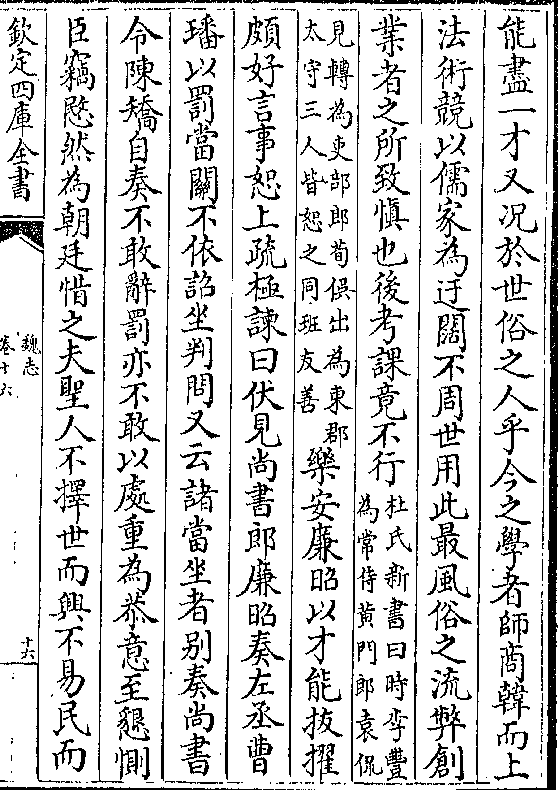 能盡一才又況於世俗之人乎今之學者師商韓而上
法術競以儒家為迂闊不周世用此最風俗之流弊創
業者之所致慎也後考課竟不行杜氏新書曰時李豐為常侍黄門郎袁侃
見轉為吏部郎荀俁出為東郡太守三人皆恕之同班友善樂安廉昭以才能拔擢
頗好言事恕上疏極諫曰伏見尚書郎廉昭奏左丞曹
璠以罰當關不依詔坐判問又云諸當坐者别奏尚書
令陳矯自奏不敢辭罰亦不敢以處重為恭意至懇惻
臣竊愍然為朝廷惜之夫聖人不擇世而興不易民而
欽定四庫全書
魏志
卷十六
十六